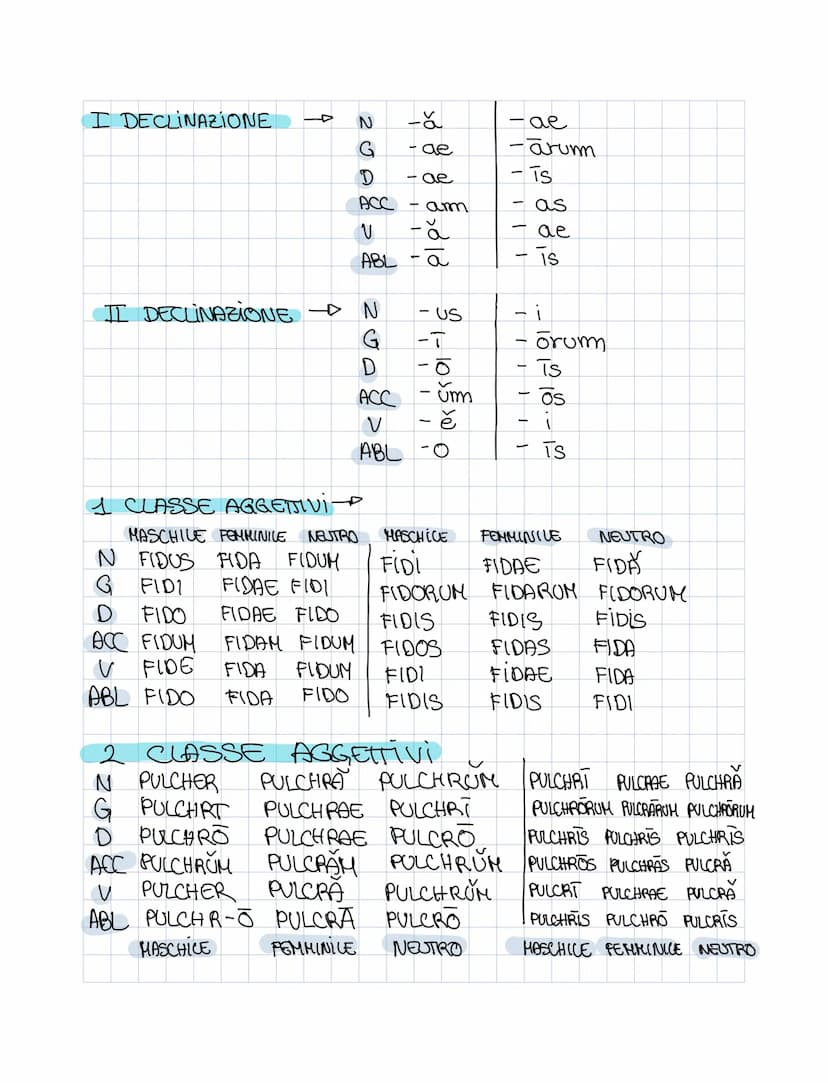 I DECLINAZIONE → N -ă -ae
G -ae -ārum
D -ae -īs
ACC -am -as
V -ă -ae
ABL -ā -īs
II DECLINAZIONE → N -us -i
G -ī -ōrum
D -ō -īs
ACC -ŭm -ōs
V -ĕ -i
ABL -o -īs
1 CLASSE AGGETTIVI →
MASCHILE FEMMINILE NEUTRO MASCHICE FEMMINILE NEUTRO
N FIDUS FIDA FIDUM FIDI FIDAE FIDĂ
G FIDI FIDAE FIDI FIDORUM FIDARUM FIDORUM
D FIDO FIDAE FIDO FIDIS FIDIS FIDIS
ACC FIDUM FIDAM FIDUM FIDOS FIDAS FIDA
V FIDE FIDA FIDUM FIDI FIDAE FIDA
ABL FIDO FIDA FIDO FIDIS FIDIS FIDI
2 CLASSE AGGETTIVI
N PULCHER PULCHRĂ PULCHRŬM PULCHRĪ PULCRAE PULCHRĂ
G PULCHRI PULCHRAE PULCHRĪ PULCHRŌRUM PULCRĀRUM PULCHRŌRUM
D PULCHRŌ PULCHRAE PULCRŌ PULCHRĪS PULCHRĪS PULCHRĪS
ACC PULCHRŬM PULCRĂM PULCHRŬM PULCHRŌS PULCHRĀS PULCRĂ
V PULCHER PULCRĂ PULCHRŬM PULCRĪ PULCHRAE PULCRĂ
ABL PULCHR-Ō PULCRĀ PULCRŌ PULCHRĪS PULCHRŌ PULCRĪS
MASCHICE FEMMINILE NEUTRO MASCHICE FEMMINICE NEUTRO